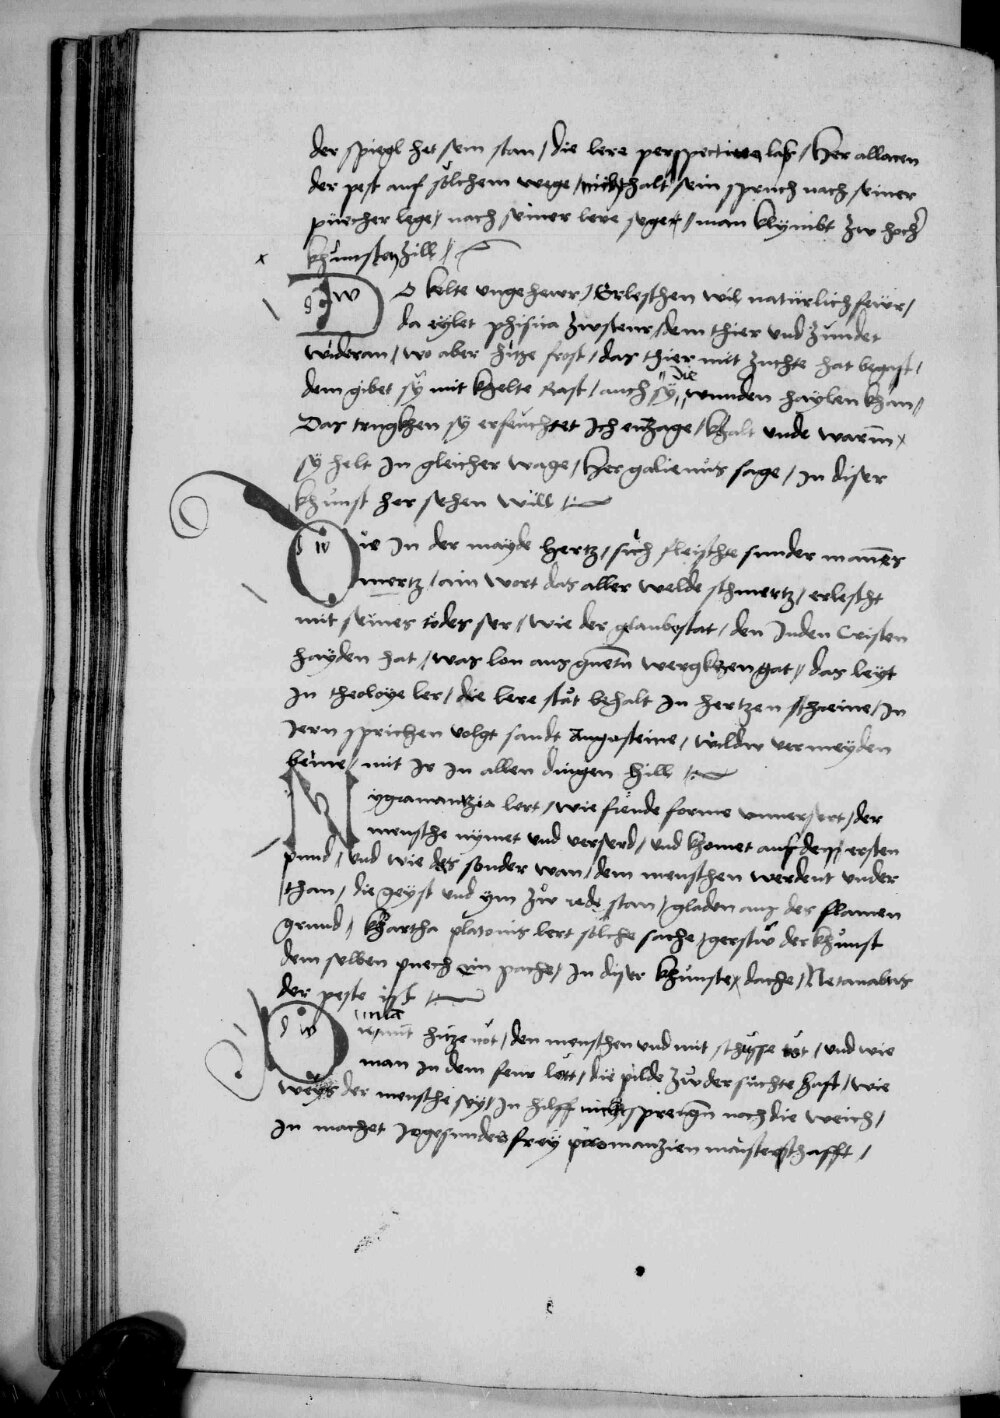 der spiegl het sein stan / die lere perspectiva las / Her allacen
der pest auf sölchem wege / nicht halt sein spruch nach seiner
püecher lege / nach seiner lere sege / man klymbt zw hoch
khunsten zill /
O kelte ungehewr / Erleschen wil natürlich feür /
da eylet phisica zwsteur / dem thier und zundet
wideran / wo aber hitze frost / das thier mit zuchte hat begast /
dem gibet sÿ mit khelte Rast / auch sÿ die wunden haylen khan /
Das trugkhen sy erfeuchtet Ich en zage / khalt unde warm
sÿ helt In gleicher wage / Her galienus sage / In diser
khunst her sehen will
ie In der mayde Hertz / sich fleischte sunder mannes
mertz / ain wort das aller welde schmertz / erlescht
mit seines todes ser / wie der glaub stat / den Juden Cristen
hayden hat / was lon aus guetn wergkhen gat / das leyt
In theoloye ler / die lere stät behalt In hertzen schreine / In
Iern sprichen volgt sandt Augosteine / wildw vermeyden
peine / mit Ir In allen dingen hill
N ygramantzia lert / wie fiende forme unversert / der
mensche nymet und verserd / und khomet auf den ersten
pund / und wie des sonder wan / dem menschen werdent under
than / die geyst und ym zw rede stan / gladen aus der flamen
grund / khartha platonis lert sölche sache / gerstw der khunst
dem selben puech ein pache / In diser khunste dache / Netanabus
der peste ist
mit hitze nöt / den menschen und mit schusse töt / und wie
man In dem feur lött / die pilde zw der süchte haft / wie
weys der mensche sey / In hilff nicht sprengn noch die weich /
In machet Ir gesundes frey piromanzien maisterschafft /